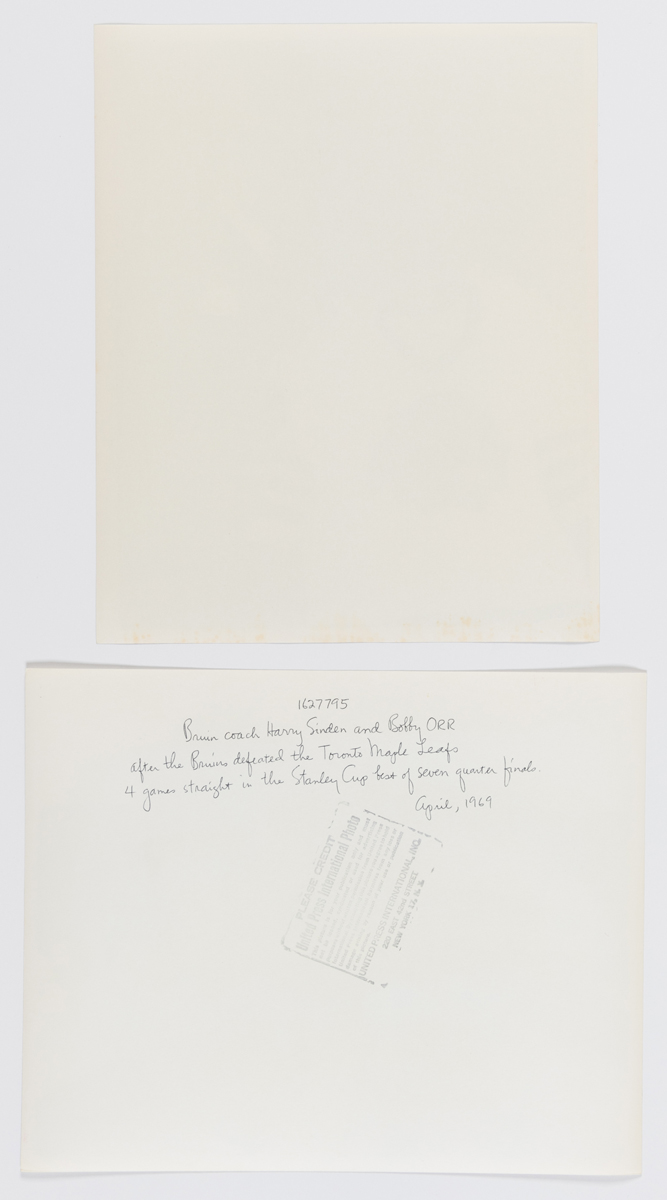 1627795
Bruin coach Harry Sinden and Bobby ORR
after the Bruins defeated the Toronto Maple Leafs
4 games straight in the Stanley Cup best of seven quarter finals.
April, 1969
PLEASE CREDIT
United Press International Photo
UNITED PRESS INTERNATIONAL, INC.
220 EAST 42ND STREET
NEW YORK 17, N. Y.